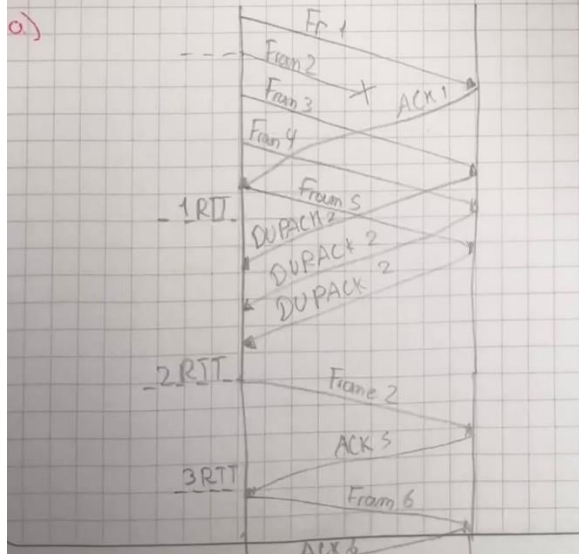 a)
Fr 1
Fram 2
ACK 1
Fram 3
Fram 4
Fram 5
1RTT
DUPACK 2
DUPACK 2
DUPACK 2
2RTT
Frame 2
ACK 5
3RTT
Fram 6
ACK 6